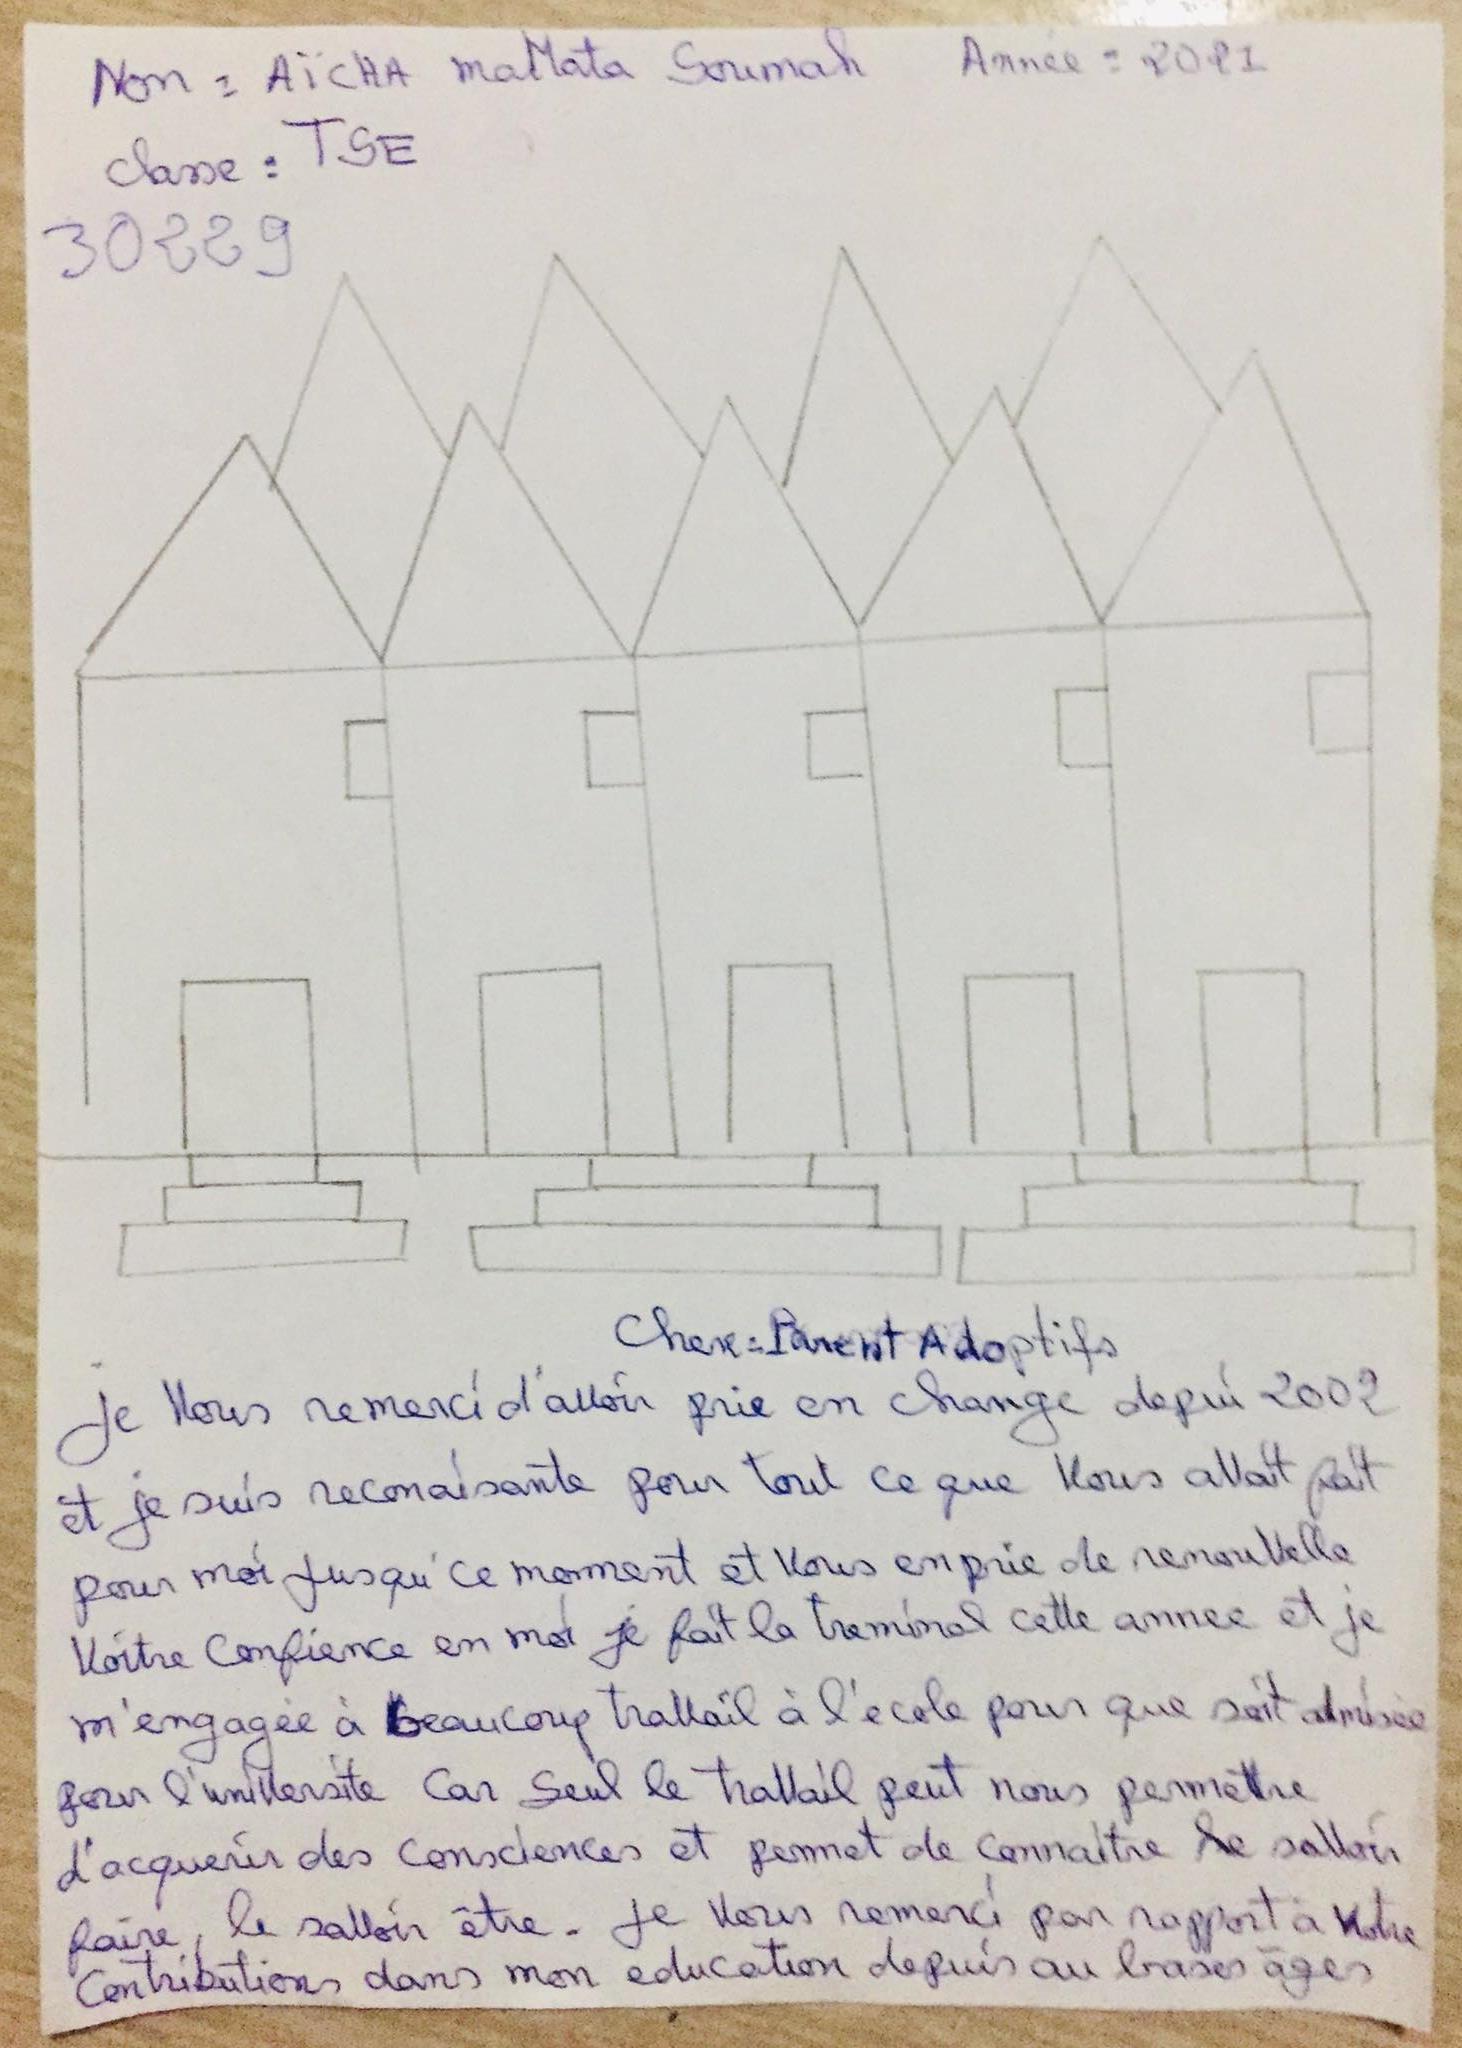 Nom = AÏCHA maMata Soumah Année = 2021
classe : TSE
30229
Cher = Parent Adoptifs
je Vous remerci d'avoir prie en charge depui 2002
et je suis reconaisante pour tout ce que Vous avait fait
pour moi jusqu'ce momment et Vous en prie de renouvelle
Voitre Confience en moi je fait la treminal cette annee et je
m'engagée à beaucoup travail à l'école pour que soit admisée
pour l'universite Car Seul le travail peut nous permettre
d'acquerir des Consciences et permet de Connaitre le savoir
faire, le savoir être. Je Vous remerci par rapport à Votre
Contributions dans mon education depuis au bases âges